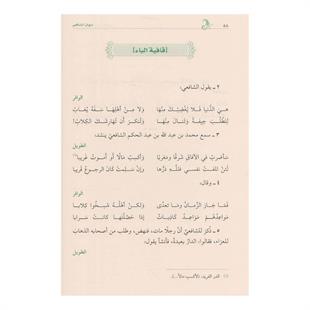 ٤٨ ديوان الشافعي
[قافية الباء]
٢ ـ يقول الشافعي:
الوافر
هي الدُّنيا فلا يُغْضِبْكَ مِنْهَا ولا مِنْ أهْلِهَا سَفَهٌ
لِتَطْلُبَ جِيفَةً وَتَنَالَ مِنْهَا وتُنكرَ أن تُهَارِشَكَ الكِلابُ!
٣ ـ سمع محمد بن عبد الله بن عبد الحكم الشافعي ينشد:
الطويل
سأضرِبُ في الآفاقِ شَرقًا ومَغْرِبًا وأكسِبُ مالًا أو أموتُ غَرِيبا(١)
لَئِنْ تَلِفَتْ نَفسي فلله دَرُّها وإنْ سَلِمَتْ كانَ الرجوعُ قَرِيبا
٤ ـ وقال:
الوافر
فَمَا جَارَ الزَّمَانُ ومَا تعدَّى ولكنْ أهْلُهُ مُسِخُوا كِلابا
مَوَاعِدُهُمْ مَوَاعِدُ كَاذِبَاتٌ إذا حَصَّلْتَهَا كانَتْ سَرابا
٥ ـ ذُكر للشافعي أنَّ رجلًا مات، فنهض، وطلب من أصحابه الذهاب
للعزاء، فقالوا: الدارُ بعيدةٌ، فأنشأ يقول:
الطويل
(١)